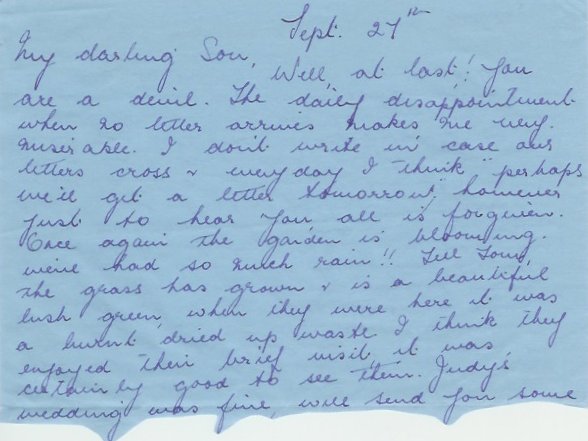 Sept. 27th
My darling Son,
Well, at last! You
are a devil. The daily disappointment
when no letter arrives makes me very
miserable. I don't write in case our
letters cross & everyday I think "perhaps
we'll get a letter tomorrow", however
just to hear you all is forgiven.
Once again the garden is blooming.
we've had so much rain!! Tell
the grass has grown & is a beautiful
lush green, when they were here it was
a burnt, dried up waste. I think they
enjoyed their brief visit, it was
certainly good to see them. Judy's
wedding was fine, will send you some